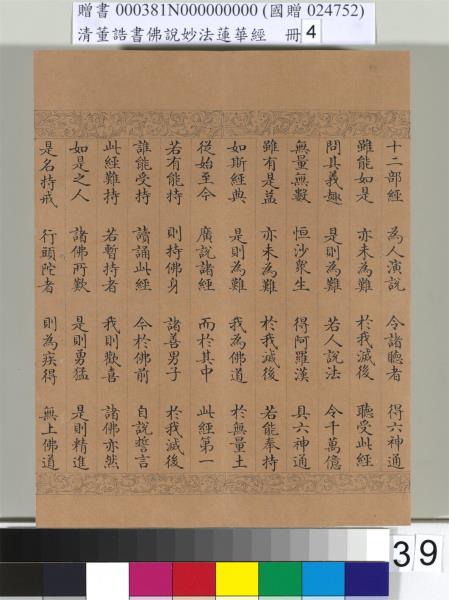 贈書 000381N000000000 (國贈 024752)
清董誥書佛說妙法蓮華經 冊 4
十二部經 為人演說 令諸聽者 得六神通
雖能如是 亦未為難 於我滅後 聽受此經
問其義趣 是則為難 若人說法 令千萬億
無量無數 恒沙眾生 得阿羅漢 具六神通
雖有是益 亦未為難 於我滅後 若能奉持
如斯經典 是則為難 我為佛道 於無量土
從始至今 廣說諸經 而於其中 此經第一
若有能持 則持佛身 諸善男子 於我滅後
誰能受持 讀誦此經 今於佛前 自說誓言
此經難持 若暫持者 我則歡喜 諸佛亦然
如是之人 諸佛所歎 是則勇猛 是則精進
是名持戒 行頭陀者 則為疾得 無上佛道
39